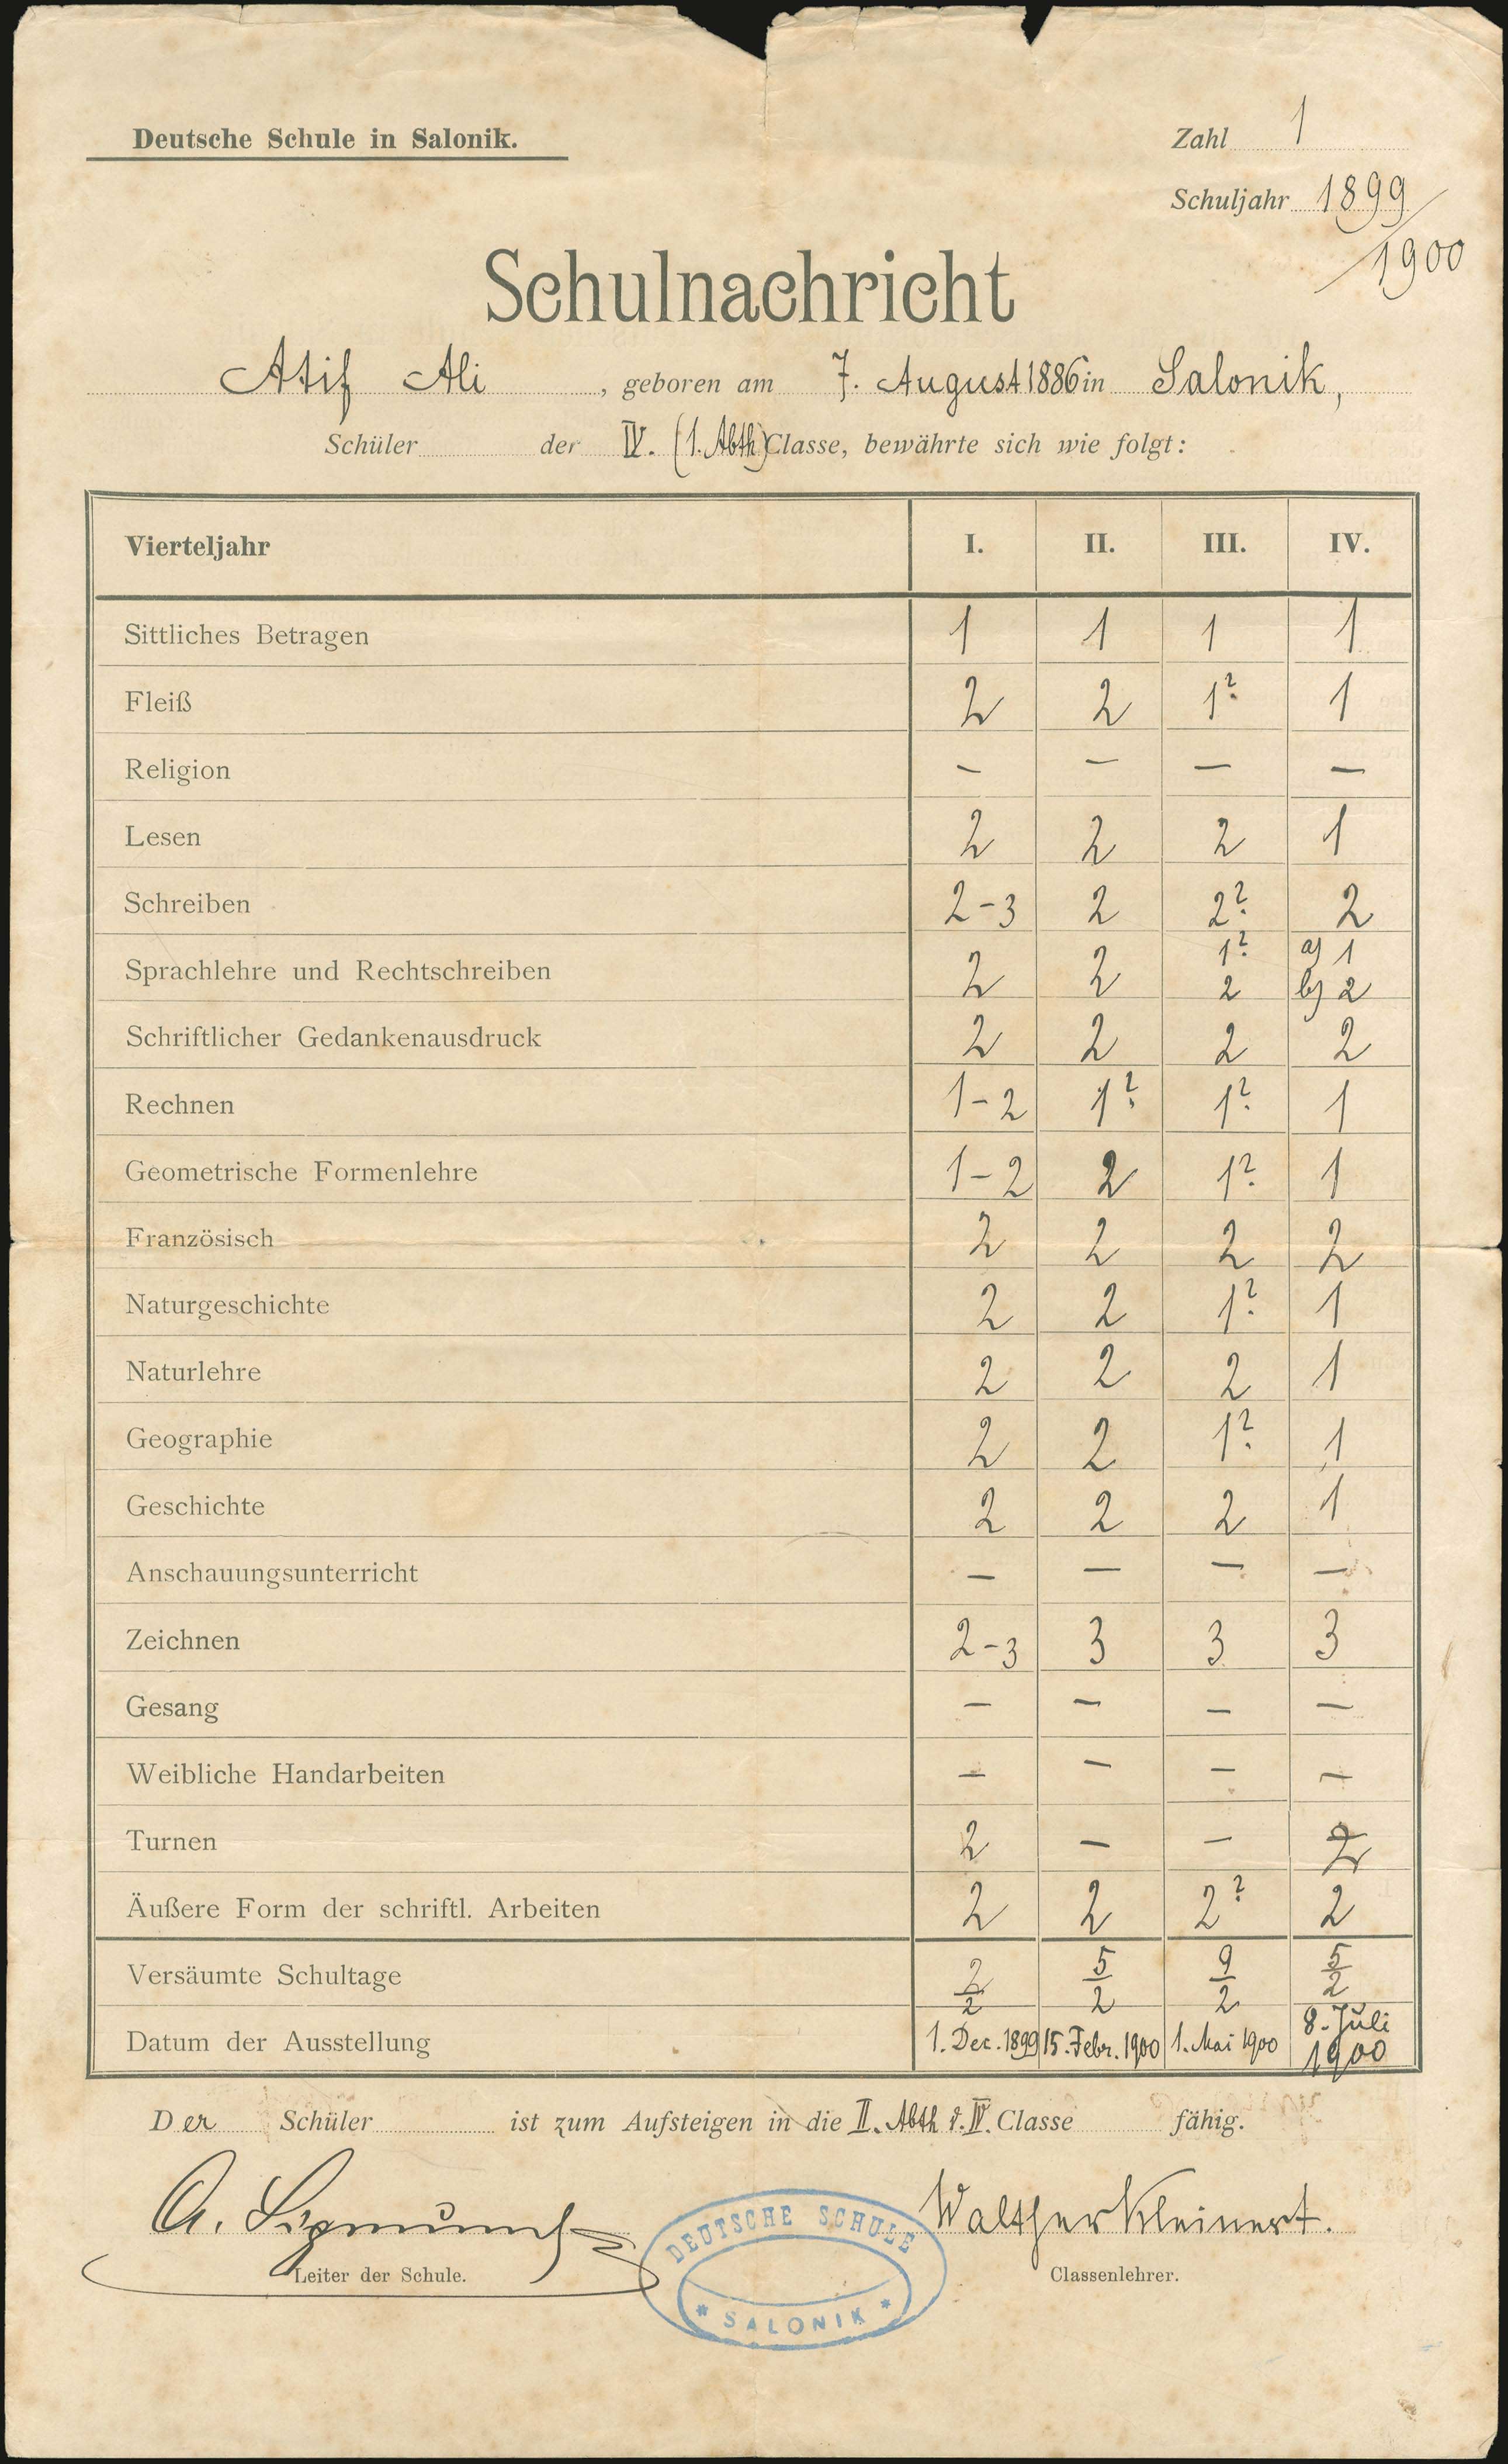 Deutsche Schule in Salonik.
Zahl 1
Schuljahr 1899/1900
Schulnachricht
Atif Ali, geboren am 7. August 1886 in Salonik,
Schüler der IV. (1. Abth) Classe, bewährte sich wie folgt:
Vierteljahr I. II. III. IV.
Sittliches Betragen 1 1 1 1
Fleiß 2 2 1? 1
Religion – – – –
Lesen 2 2 2 1
Schreiben 2-3 2 2? 2
Sprachlehre und Rechtschreiben 2 2 1? 2 a) 1 b) 2
Schriftlicher Gedankenausdruck 2 2 2 2
Rechnen 1-2 1? 1? 1
Geometrische Formenlehre 1-2 2 1? 1
Französisch 2 2 2 2
Naturgeschichte 2 2 1? 1
Naturlehre 2 2 2 1
Geographie 2 2 1? 1
Geschichte 2 2 2 1
Anschauungsunterricht – – – –
Zeichnen 2-3 3 3 3
Gesang – – – –
Weibliche Handarbeiten – – – –
Turnen 2 – – 2
Äußere Form der schriftl. Arbeiten 2 2 2? 2
Versäumte Schultage 2/2 5/2 9/2 5/2
Datum der Ausstellung 1. Dec. 1899 15. Febr. 1900 1. Mai 1900 8. Juli 1900
Der Schüler ist zum Aufsteigen in die II. Abth d. IV. Classe fähig.
Walther Kleinert.
Leiter der Schule.
Classenlehrer.
DEUTSCHE SCHULE
* SALONIK *